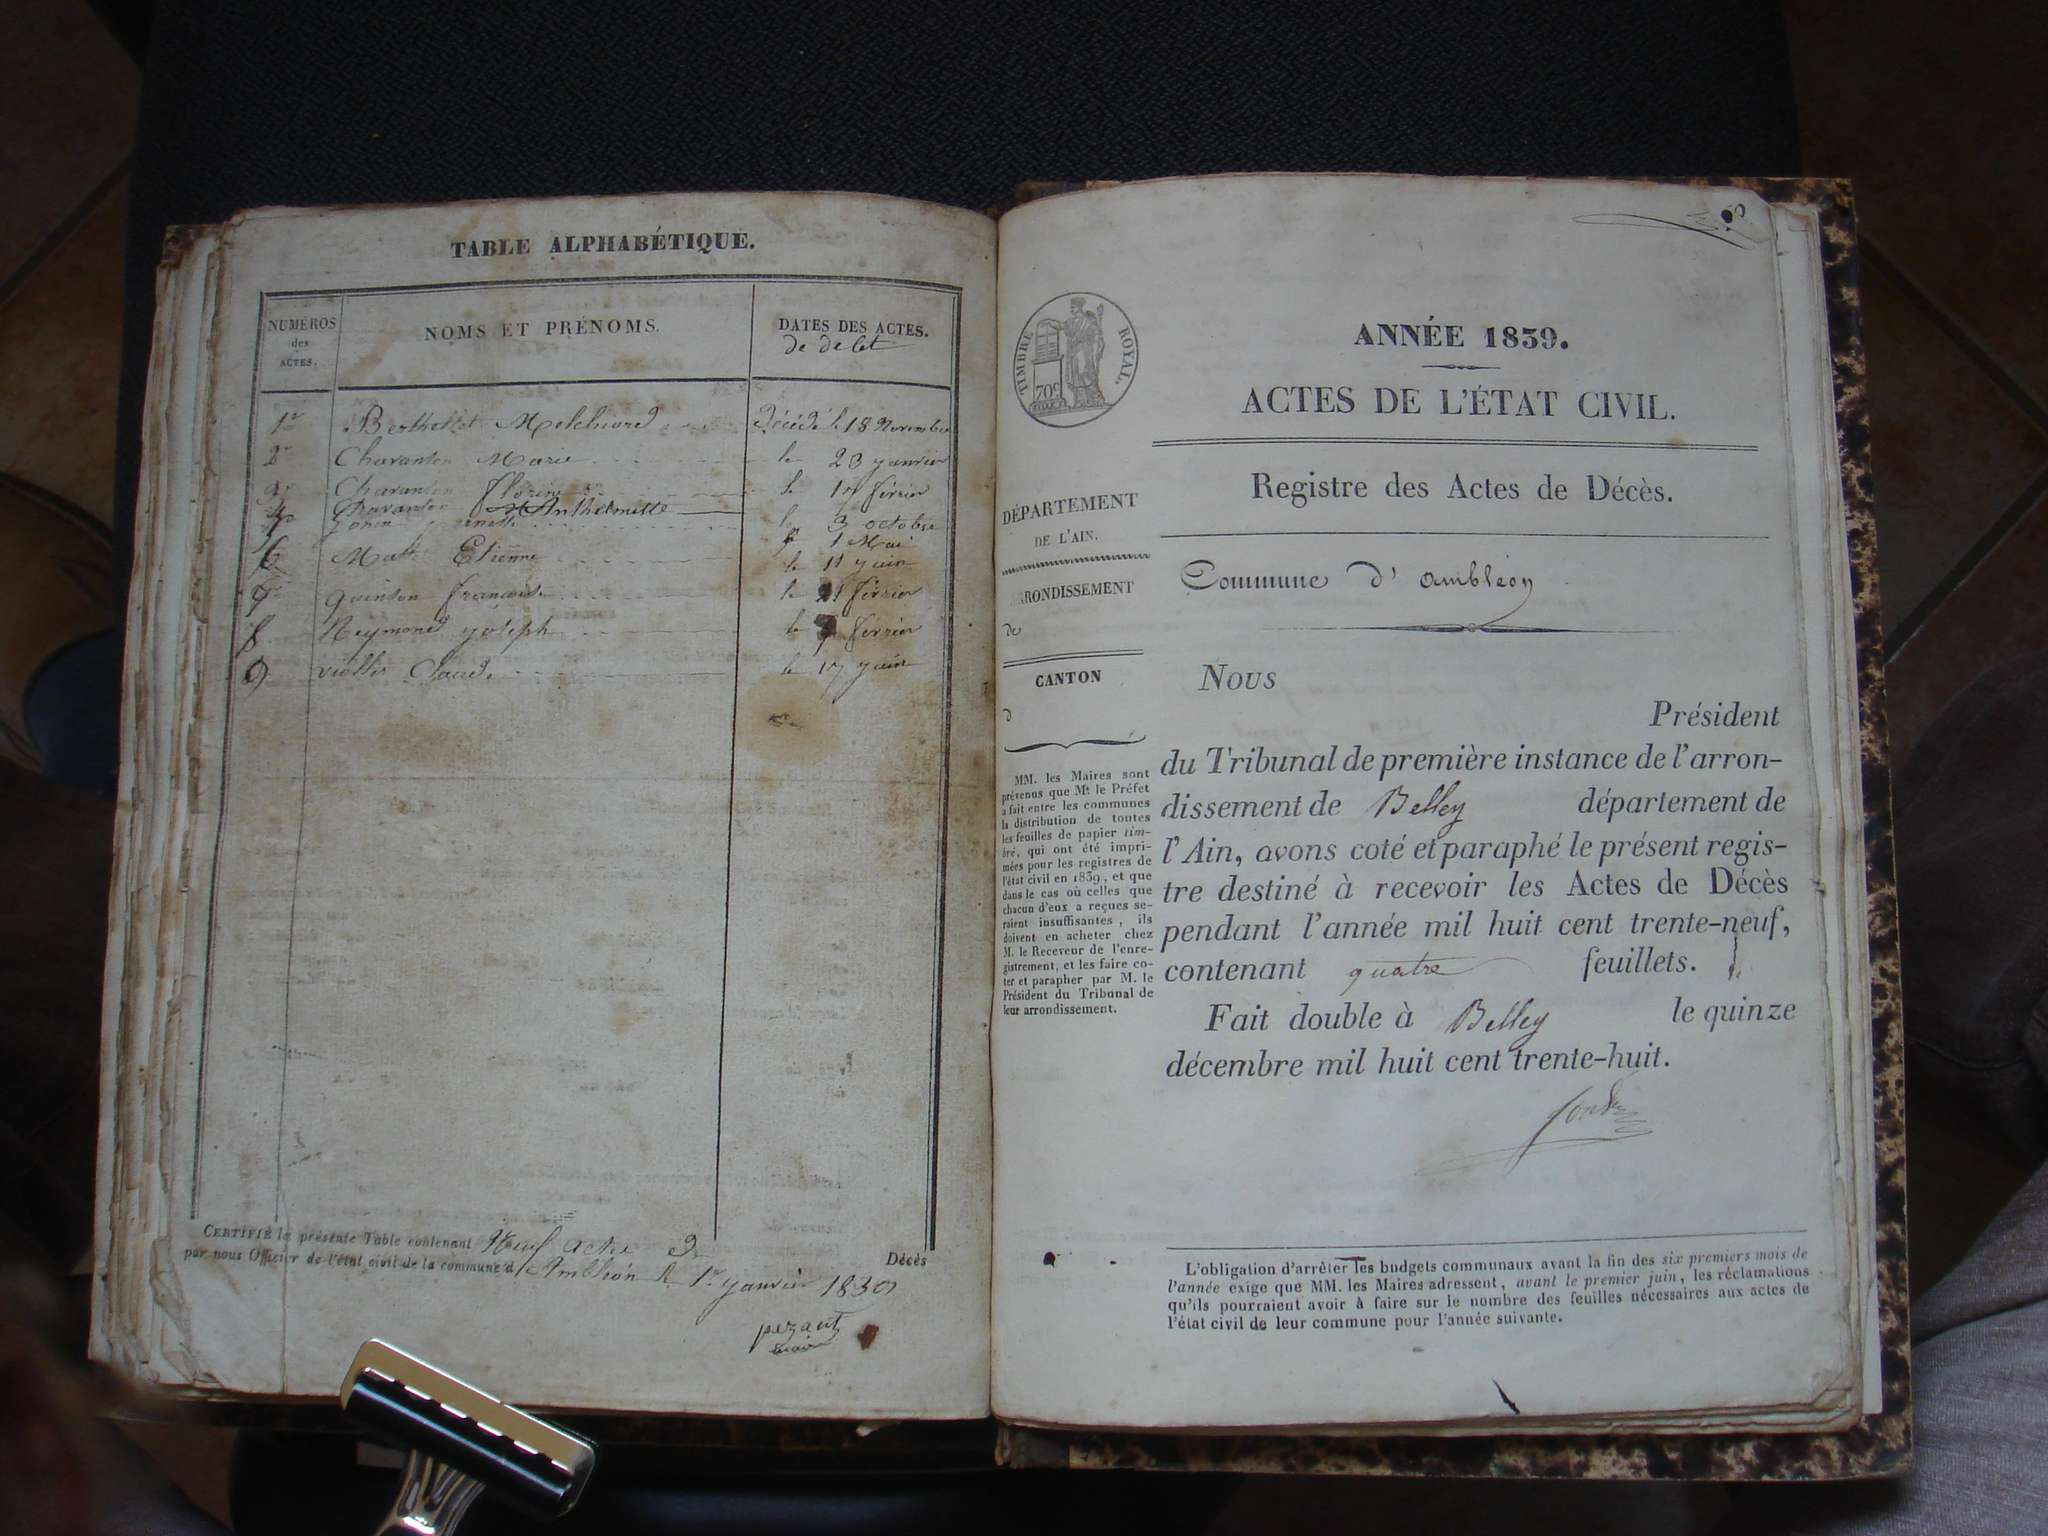 TABLE ALPHABÉTIQUE.
NUMÉROS des ACTES.
NOMS ET PRÉNOMS.
DATES DES ACTES.
de décet
1er Berthellet Melchiord décédé le 18 Novembre
2e Charanton Marie le 23 janvier
3e Charanton le 17 février
4 Charanton Anthelmette le 3 octobre
5 1 Mai
6 Etienne le 11 juin
7 quinson françoise le 21 février
8 Reymond joseph le février
9 viollet Claud. le 17 juin
CERTIFIÉ la présente Table contenant Neuf acte de Décès
par nous Officier de l'état civil de la commune d' Ambléon le 1er janvier 1839
pezant
maire
TIMBRE ROYAL.
70c
ANNÉE 1839.
ACTES DE L'ÉTAT CIVIL.
Registre des Actes de Décès.
Commune d' ambléon
DÉPARTEMENT
DE L'AIN.
RRONDISSEMENT
de
CANTON
d
MM. les Maires sont
prévenus que Mr le Préfet
a fait entre les communes
la distribution de toutes
les feuilles de papier tim-
bré, qui ont été impri-
mées pour les registres de
l'état civil en 1839, et que
dans le cas où celles que
chacun d'eux a reçues se-
raient insuffisantes, ils
doivent en acheter chez
M. le Receveur de l'enre-
gistrement, et les faire co-
ter et parapher par M. le
Président du Tribunal de
leur arrondissement.
Nous
Président
du Tribunal de première instance de l'arron-
dissement de Belley département de
l'Ain, avons coté et paraphé le présent regis-
tre destiné à recevoir les Actes de Décès
pendant l'année mil huit cent trente-neuf,
contenant quatre feuillets.
Fait double à Belley le quinze
décembre mil huit cent trente-huit.
L'obligation d'arrêter les budgets communaux avant la fin des six premiers mois de
l'année exige que MM. les Maires adressent, avant le premier juin, les réclamations
qu'ils pourraient avoir à faire sur le nombre des feuilles nécessaires aux actes de
l'état civil de leur commune pour l'année suivante.